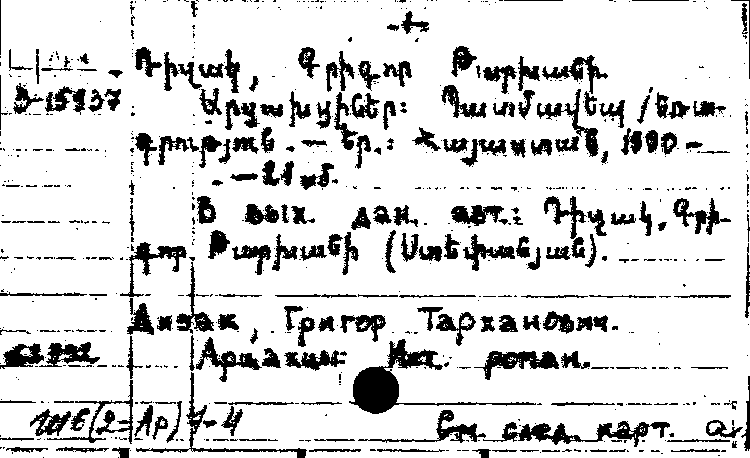 - 1 -
Դիզակ, Գրիգոր Թարխանի.
Յ-15937 Արցախցիներ: Պատմավեպ / եռա-
գրություն. — Եր.: Հայաստան, 1990 —
. — 21 սմ.
В вых. дан. авт.: Դիզակ, Գրի-
գոր Թարխանի (Ստեփանյան).
Дизак, Григор Тарханович.
Арцахцы: Ист. роман.
(2=Ар) 7-4 См. след. карт.